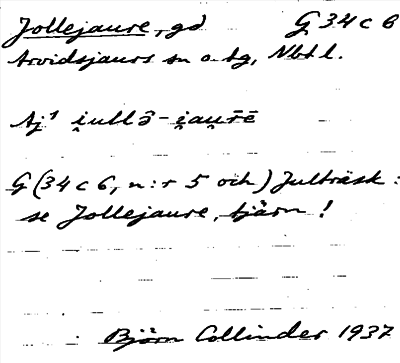 Jollejaure, gd G 34 c 6
Arvidsjaurs sn o. tg, Nbtl.
Aj¹ i̯ullɔ̄ - i̯au̯rēē
G (34 c 6, n:r 5 och) Julträsk :
se Jollejaure, tjärn !
Björn Collinder 1937